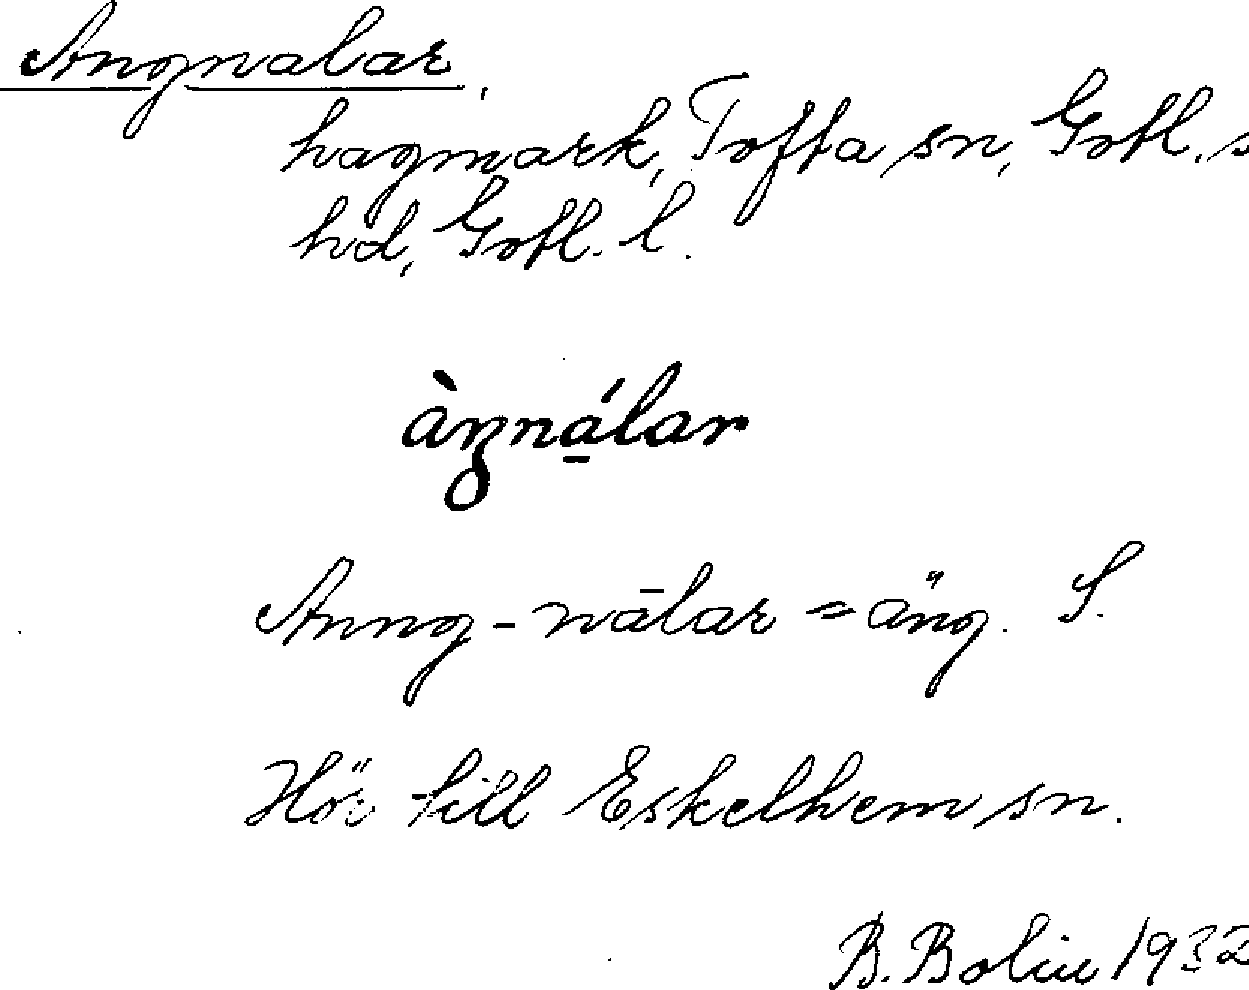 Angnalar.
hagmark, Tofta sn, Gotl. s
hd, Gotl. l.
àŋná̱lar
Anng-nālar = äng. S.
Hör till Eskelhem sn.
B. Bolin 1932